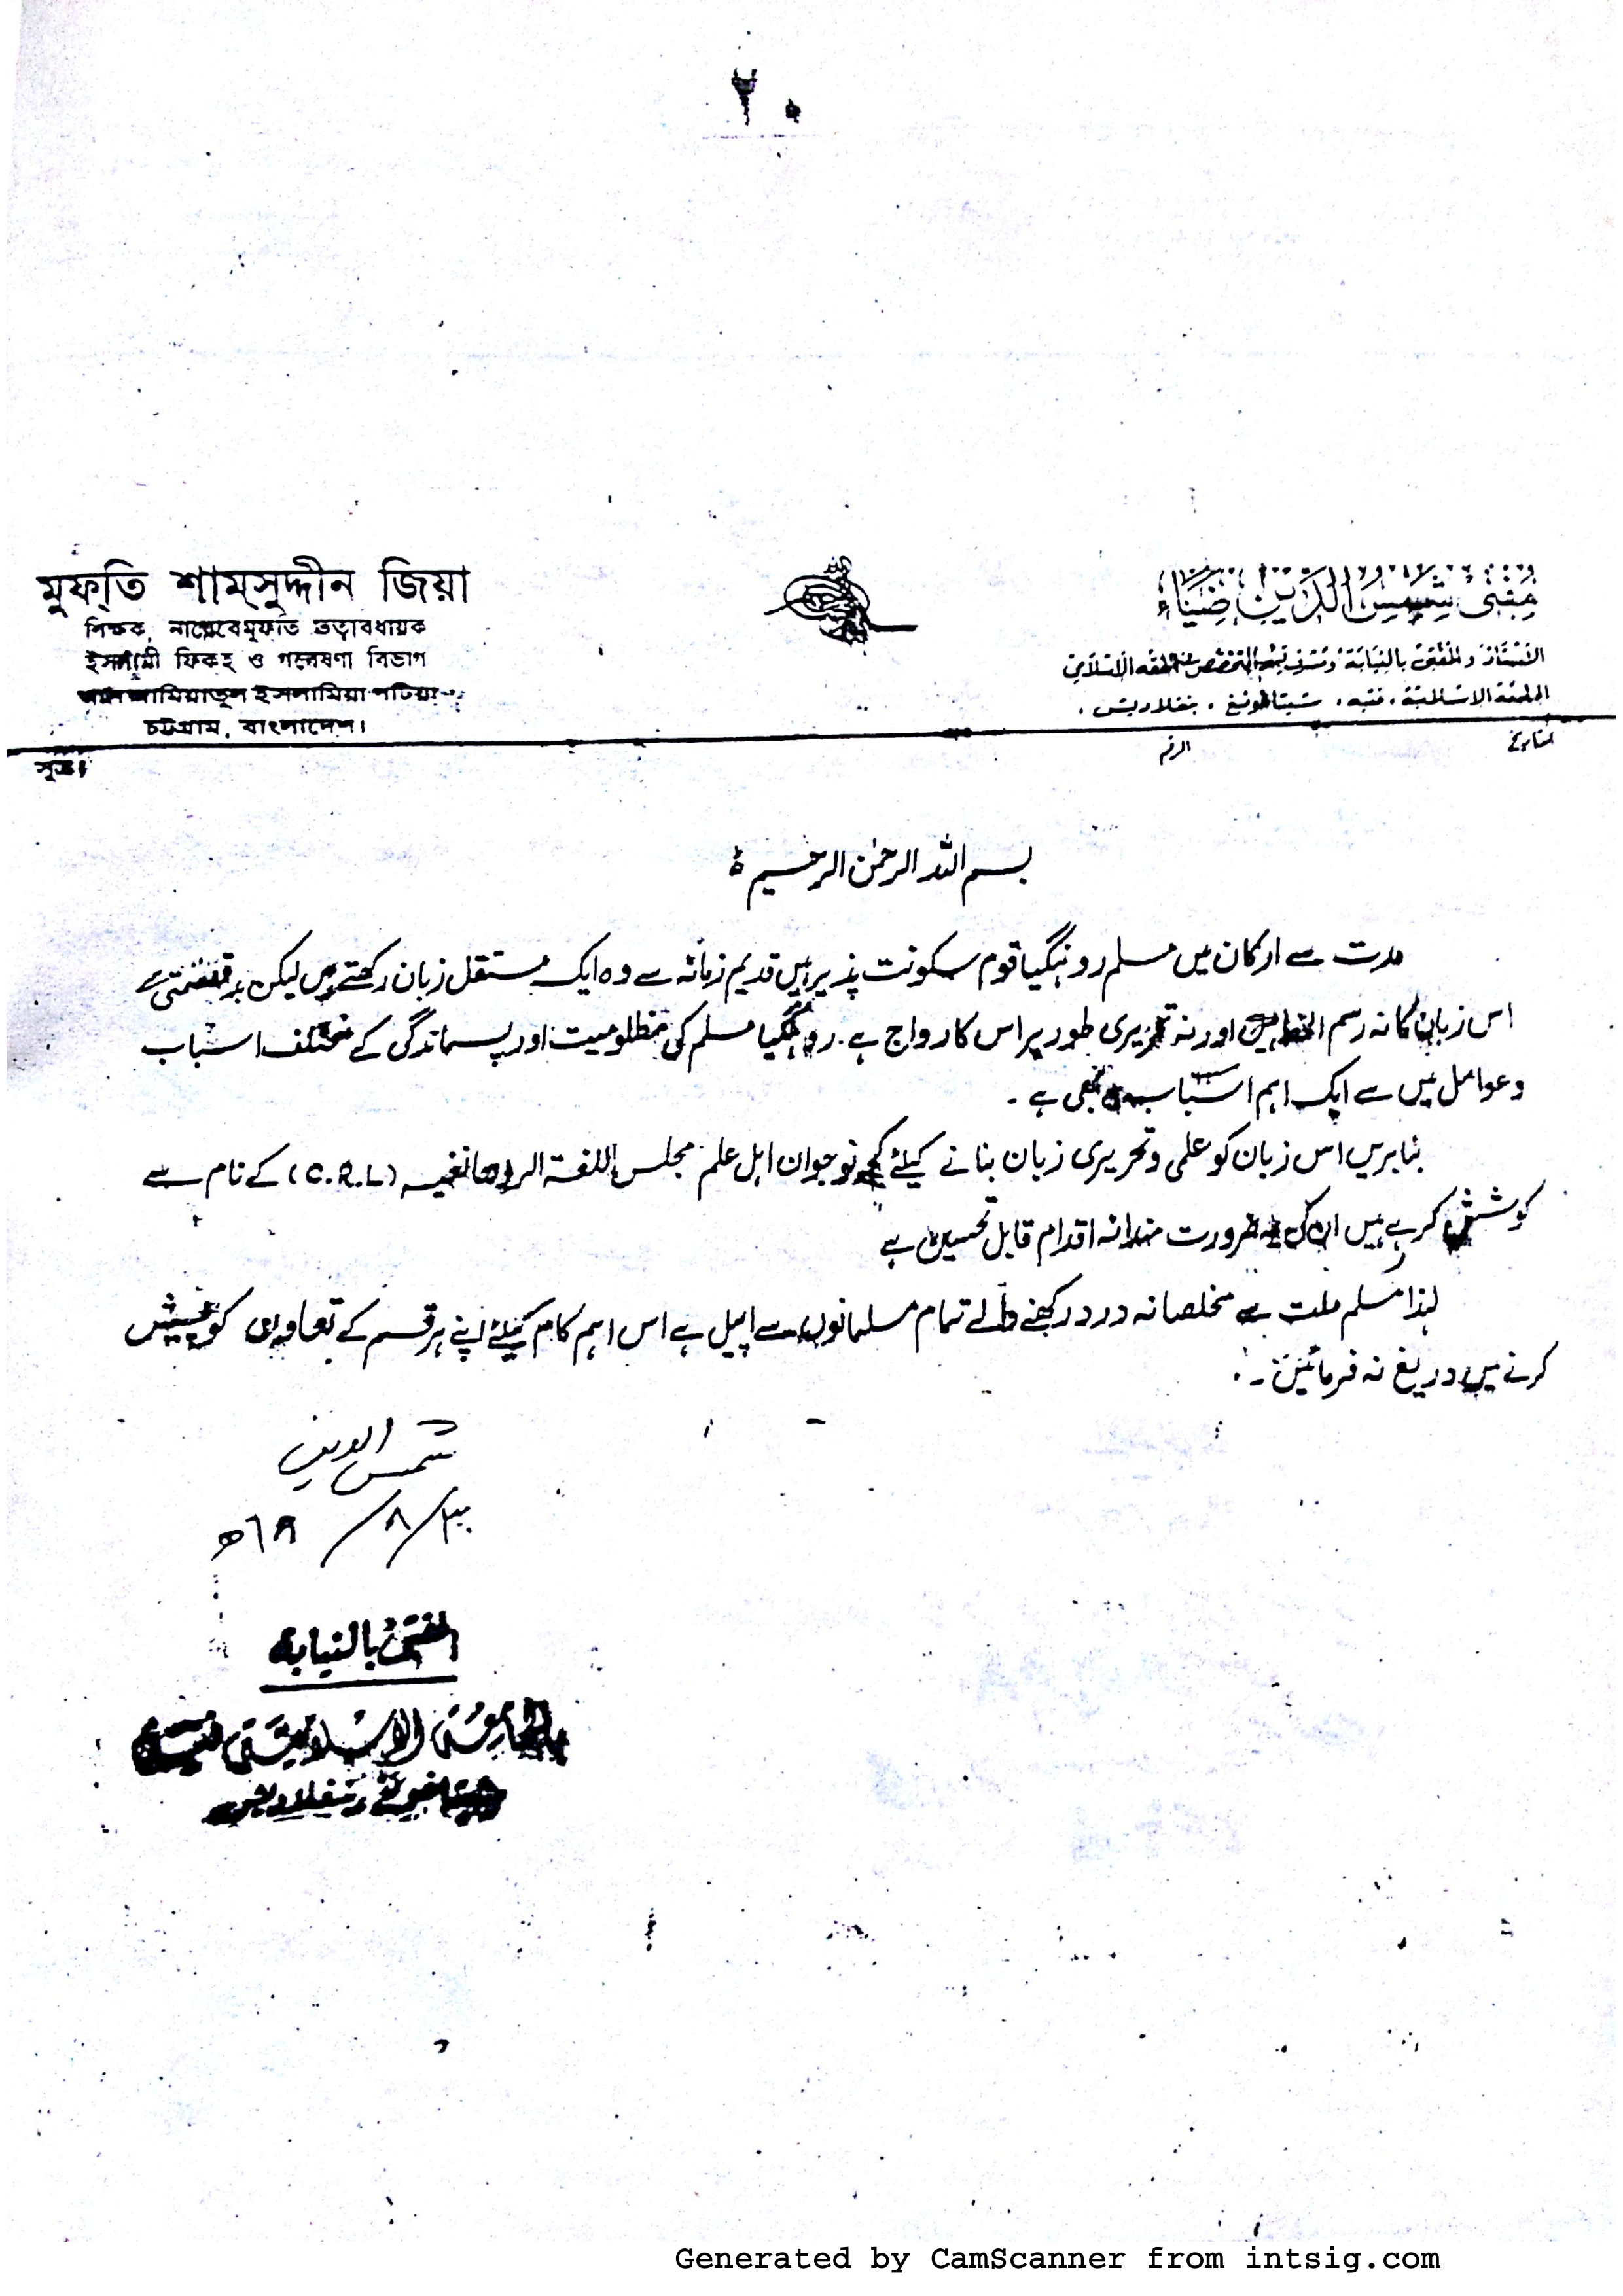 ۲۰
মুফ্তি শাম্সুদ্দীন জিয়া
শিক্ষক, নায়েবে মুফতি তত্বাবধায়ক
ইসলামী ফিকহ ও গবেষণা বিভাগ
আল জামিয়াতুল ইসলামিয়া পটিয়া
চট্টগ্রাম, বাংলাদেশ।
সূত্র।
مفتي شمس الدين ضياء
والمفتى بالنيابة التخصص الفقه الإسلامي
شيتاغونغ ، بنغلاديش .
الرقم
التاريخ
بسم اللہ الرحمٰن الرحیم ہ
مدت سے ارکان میں مسلم روہنگیا قوم سکونت پذیر ہیں قدیم زمانہ سے وہ ایک مستقل زبان رکھتے ہیں لیکن
اس زبان کا نہ رسم الخط ہیں اور نہ تحریری طور پر اس کا رواج ہے . روہنگیا مسلم کی مظلومیت اور پسماندگی کے مختلف اسباب
وعوامل میں سے ایک اہم اسباب بھی ہے ۔
بنابریں اس زبان کو علمی وتحریری زبان بنانے کیلئے کچھ نوجوان اہل علم مجلس اللغۃ (C.R.L) کے نام سے
کوشش کر رہے ہیں ان کی یہ ضرورت مندانہ اقدام قابل تحسین ہے
لہٰذا مسلم ملت سے مخلصانہ درد رکھنے والے تمام مسلمانوں سے اپیل ہے اس اہم کام کیلئے اپنے ہر قسم کے تعاون کوشش
کرنے میں دریغ نہ فرمائیں ۔
شمس الدین
۳۰/۸/
المفتي بالنيابة
الجامعة الإسلامية فتية
شيتاغونغ بنغلاديش
Generated by CamScanner from intsig.com